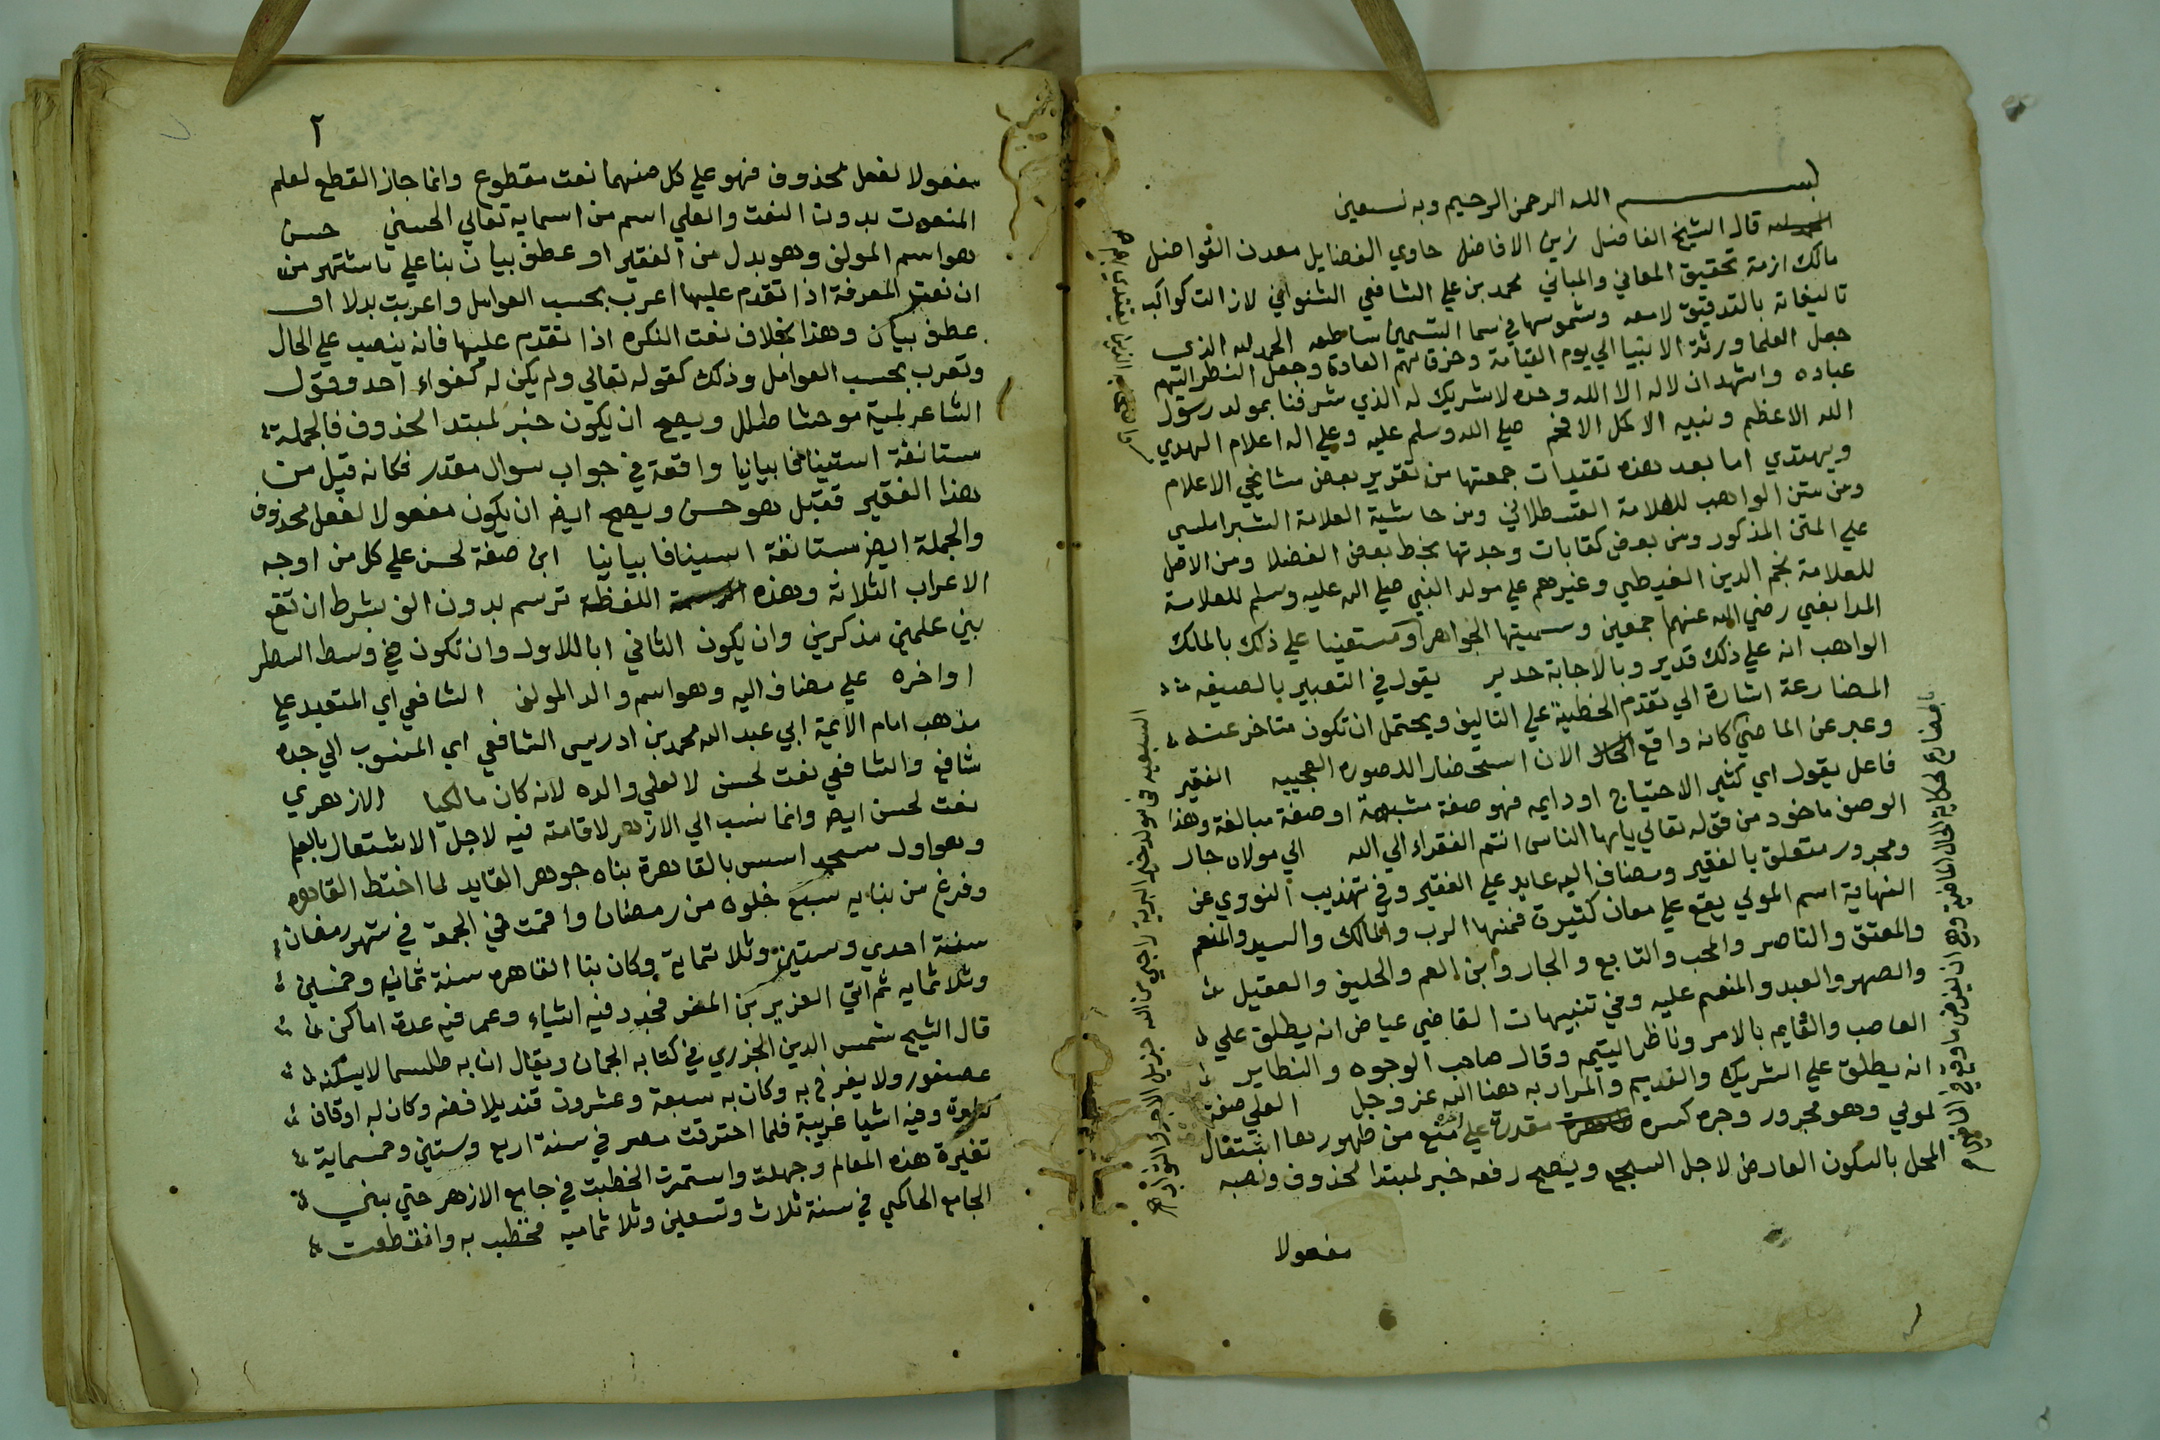 بسم الله الرحمن الرحيم وبه نستعين
قال الشيخ الفاضل زين الافاضل حاوي الفضايل معدن الفواضل
مالك ازمة تحقيق المعاني والمباني محمد بن علي الشافعي الشنواني لازالت كواكب
تاليفاته بالتدقيق لامعه وشموسها في سما التسمين ساطعه الحمد لله الذي
جعل العلما ورثة الانبيا الي يوم القيامة وخرق لهم العادة وجعل النظر اليهم
عباده واشهد ان لا اله الا الله وحده لا شريك له الذي شرفنا بمولد رسول
الله الاعظم ونبيه الاكمل الافخم صلي الله وسلم عليه وعلي اله اعلام الهدي
ويهتدي اما بعد هذه تقييدات جمعتها من تقرير بعض مشايخي الاعلام
ومن متن المواهب للعلامة القسطلاني ومن حاشية العلامة الشبراملسي
علي المتن المذكور ومن بعض كتابات وجدتها بخط بعض الفضلا ومن الاصل
للعلامة نجم الدين الغيطي وغيرهم علي مولد النبي صلي الله عليه وسلم للعلامة
المدابغي رضي الله عنهم اجمعين وسميتها الجواهر مستعينا علي ذلك بالملك
الواهب انه علي ذلك قدير وبالاجابة جدير يقول في التعبير بالصيغه
المضارعة اشارة الي تقدم الخطبة علي التاليف ويحتمل ان تكون متاخرعنه
وعبر عن الماضي كانه واقع الان استحضارا للصوره العجيبه الفقير
فاعل يقول اي كثير الاحتياج او دايمه فهو صفة مشبهة او صفة مبالغة وهذا
الوصف ماخوذ من قوله تعالي يايها الناس انتم الفقراء الي الله الي مولاه جار
ومجرور متعلق بالفقير ومضاف اليه عايد علي الفقير وفي تهذيب النووي عن
النهاية اسم المولي يقع علي معان كثيرة فمنها الرب والمالك والسيد والمنعم
والمعتق والناصر والمحب والتابع والجار وابن العم والحليف والعقيل
والصهر والعبد والمنعم عليه وفي تنبيهات القاضي عياض انه يطلق علي
العاصب والقايم بالامر وناظر اليتيم وقال صاحب الوجوه والنظاير
انه يطلق علي الشريك والقديم والمراد به هنا الله عز وجل العلي صفة
لمولي وهو مجرور وجره كسره مقدرة علي منع من ظهورها اشتغال
المحل بالسكون العارض لاجل السجع ويصح رفعه خبر لمبتدا محذوف ونصبه
مفعولا
٢
مفعولا لفعل محذوف فهو علي كل منهما نعت مقطوع وانما جاز القطع لعلم
المنعوت بدون النعت والعلي اسم من اسمايه تعالي الحسني حسن
هو اسم المولف وهو بدل من الفقير او عطف بيان بنا علي ما اشتهر من
ان نعت المعرفة اذا تقدم عليها اعرب بحسب العوامل واعربت بدلا او
عطف بيان وهذا بخلاف نعت النكره اذا تقدم عليها فانه ينصب علي الحال
وتعرب بحسب العوامل وذلك كقوله تعالي ولم يكن له كفواء احد وقول
الشاعر لمية موحشا طلل ويصح ان يكون خبر لمبتدا محذوف فالجملة
مستانفة استينافا بيانيا واقعة في جواب سوال مقدر فكانه قيل من
هذا الفقير فقيل هو حسن ويصح ايض ان يكون مفعولا لفعل محذوف
والجملة ايض مستانفة استينافا بيانيا ابن صفة لحسن علي كل من اوجه
الاعراب الثلاثة وهذه اللفظة ترسم بدون الف بشرط ان تقع
بين علمين مذكرين وان يكون الثاني ابا للاول وان تكون في وسط السطر
اواخره علي مضاف اليه وهو اسم والد المولف الشافعي اي المتعبد علي
مذهب امام الائمة ابي عبد الله محمد بن ادريس الشافعي اي المنسوب الي جده
شافع والشافعي نعت لحسن لا لعلي والده لانه كان مالكيا الازهري
نعت لحسن ايض وانما نسب الي الازهر لاقامته فيه لاجل الاشتغال بالعلم
وهو اول مسجد اسس بالقاهرة بناه جوهر القايد لما اختط القاهره
وفرغ من بنايه سبع خلوه من رمضان واقمت في الجمعة في شهر رمضان
سنة احدي وستين وثلاثماية وكان بنا القاهره سنة ثمانيه وخمسين
وثلاثمايه ثم اتي العزيز بن المعز فجدد فيه اشياء وعمر فيه عدة اماكن
قال الشيخ شمس الدين الجزري في كتابه الجمان ويقال ان به طلسما لا يسكنه
عصفور ولا يفرخ به وكان به سبعة وعشرون قنديلا فضه وكان له اوقاف
وفيه اشيا غريبة فلما احترقت مصر في سنة اربع وستين وخمسماية
تغيرة هذه المعالم وجهلت واستمرت الخطبة في جامع الازهر حتي بني
الجامع الحاكمي في سنة ثلاث وتسعين وثلاثماميه فخطب به وانقطعت